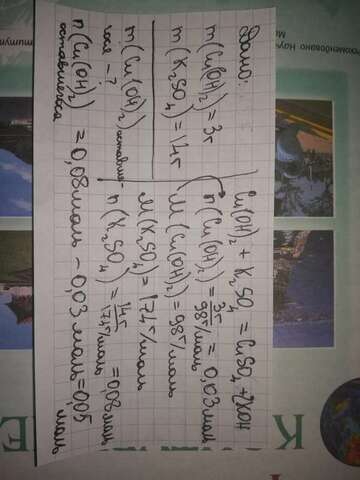 Дано:
m(Cu(OH)₂) = 3г
m(K₂SO₄) = 14г
m(Cu(OH)₂) оставше-
гося - ?
Cu(OH)₂ + K₂SO₄ = CuSO₄ + 2KOH
n(Cu(OH)₂) = 3г / 98г/моль = 0,03 моль
M(Cu(OH)₂) = 98г/моль
M(K₂SO₄) = 174г/моль
n(K₂SO₄) = 14г / 174г/моль = 0,08 моль
n(Cu(OH)₂) = 0,08 моль - 0,03 моль = 0,05 моль
оставшегося